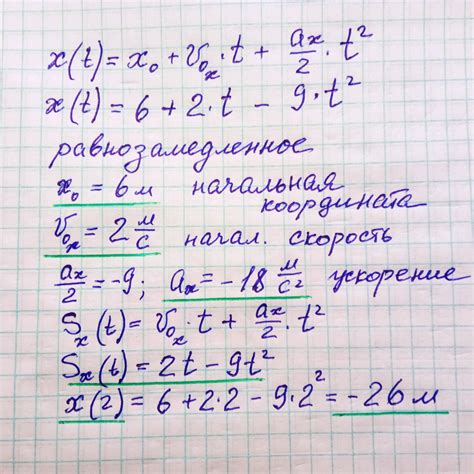 x(t) = x₀ + v₀ₓ · t + aₓ/2 · t²
x(t) = 6 + 2 · t − 9 · t²
равнозамедленное
x₀ = 6 м начальная
координата
v₀ₓ = 2 м/с начал. скорость
aₓ/2 = −9; aₓ = −18 м/с² ускорение
Sₓ(t) = v₀ₓ · t + aₓ/2 · t²
Sₓ(t) = 2t − 9t²
x(2) = 6 + 2 · 2 − 9 · 2² = −26 м